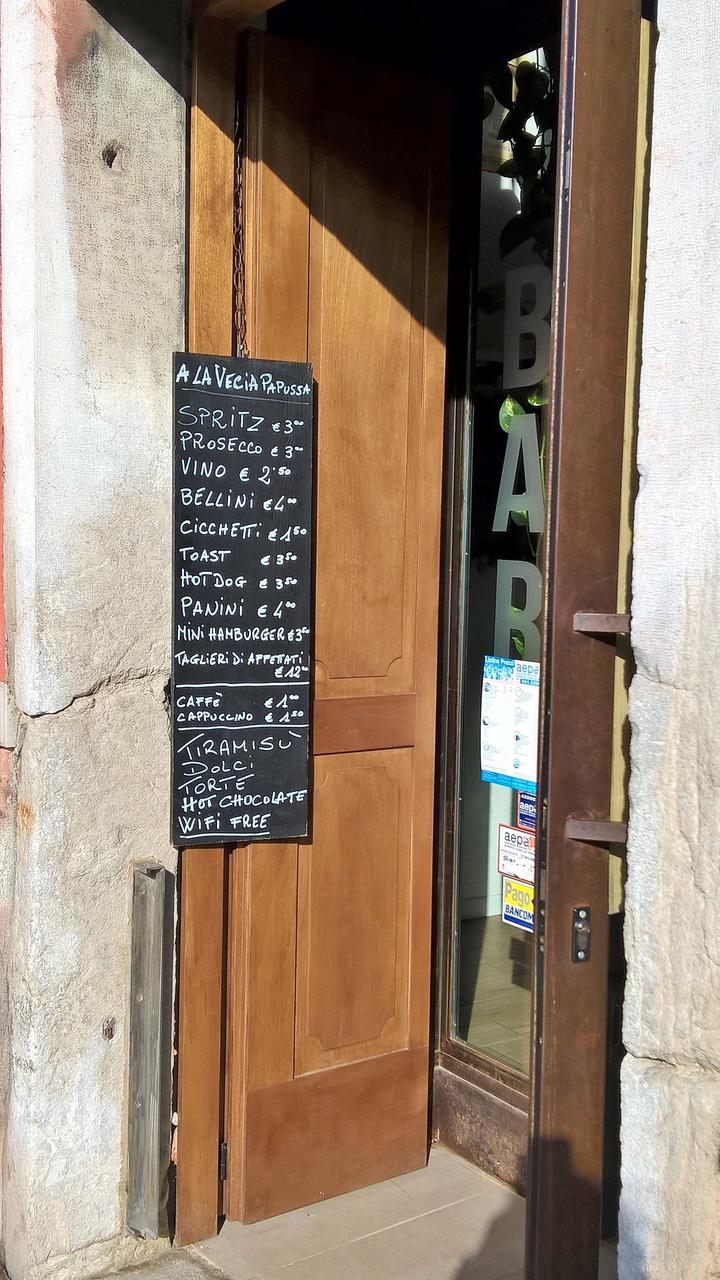 A LA VECIA PAPUSSA
SPRITZ € 3°°
PROSECCO € 3°°
VINO € 2'50
BELLINI €4°°
CICCHETTI €1'50
TOAST € 3'50
HOT DOG € 3'50
PANINI € 4°°
MINI HAMBURGER €3'50
TAGLIERI DI AFFETTATI
€12°°
CAFFÈ € 1°°
CAPPUCCINO € 1'50
TIRAMISÙ
DOLCI
TORTE
HOT CHOCOLATE
WIFI FREE
BAR
Listino Prezzi aepe
aepe
Pago
BANCOM